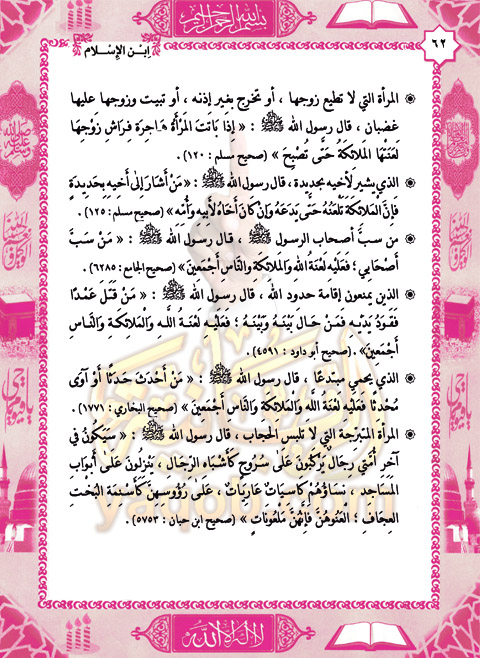 بسم الله الرحمن الرحيم
ابن الإسلام
٦٢
المرأة التي لا تطيع زوجها ، أو تخرج بغير إذنه ، أو تبيت وزوجها عليها
غضبان ، قال رسول الله ﷺ : « إِذَا بَاتَتْ المَرْأَةُ هَاجِرَةً فِرَاشَ زَوْجِهَا
لَعَنَتْهَا المَلَائِكَةُ حَتَّى تُصْبِحَ » (صحيح مسلم : ١٢٠) .
الذي يشير لأخيه بحديدة ، قال رسول الله ﷺ : « مَنْ أَشَارَ إِلَى أَخِيهِ بِحَدِيدَةٍ
فَإِنَّ المَلَائِكَةَ تَلْعَنُهُ حَتَّى يَدَعَهُ وَإِنْ كَانَ أَخَاهُ لِأَبِيهِ وَأُمِّهِ » (صحيح مسلم : ١٢٥) .
من سبَّ أصحاب الرسول ﷺ ، قال رسول الله ﷺ : « مَنْ سَبَّ
أَصْحَابِي ؛ فَعَلَيْهِ لَعْنَةُ اللهِ وَالمَلَائِكَةِ وَالنَّاسِ أَجْمَعِينَ » (صحيح الجامع : ٦٢٨٥) .
الذين يمنعون إقامة حدود الله ، قال رسول الله ﷺ : « مَنْ قَتَلَ عَمْدًا
فَقَوَدُ يَدَيْهِ فَمَنْ حَالَ بَيْنَهُ وَبَيْنَهُ ؛ فَعَلَيْهِ لَعْنَةُ اللهِ وَالْمَلَائِكَةِ وَالنَّاسِ
أَجْمَعِينَ » . (صحيح أبو داود : ٤٥٩١) .
الذي يحمي مبتدعًا ، قال رسول الله ﷺ : « مَنْ أَحْدَثَ حَدَثًا أَوْ آوَى
مُحْدِثًا فَعَلَيْهِ لَعْنَةُ اللهِ وَالْمَلَائِكَةِ وَالنَّاسِ أَجْمَعِينَ » (صحيح البخاري : ١٧٧١) .
المرأة المتبرّجة التي لا تلبس الحجاب ، قال رسول الله ﷺ : « سَيَكُونُ فِي
آخِرِ أُمَّتِي رِجَالٌ يَرْكَبُونَ عَلَى سُرُوجٍ كَأَشْبَاهِ الرِّجَالِ ، يَنْزِلُونَ عَلَى أَبْوَابِ
المَسَاجِدِ ، نِسَاؤُهُمْ كَاسِيَاتٌ عَارِيَاتٌ ، عَلَى رُؤُوسِهِنَّ كَأَسْنِمَةِ البُخْتِ
العِجَافِ ؛ الْعَنُوهُنَّ فَإِنَّهُنَّ مَلْعُونَاتٌ » (صحيح ابن حبان : ٥٧٥٣) .
yaqob.com
لا إله إلا الله